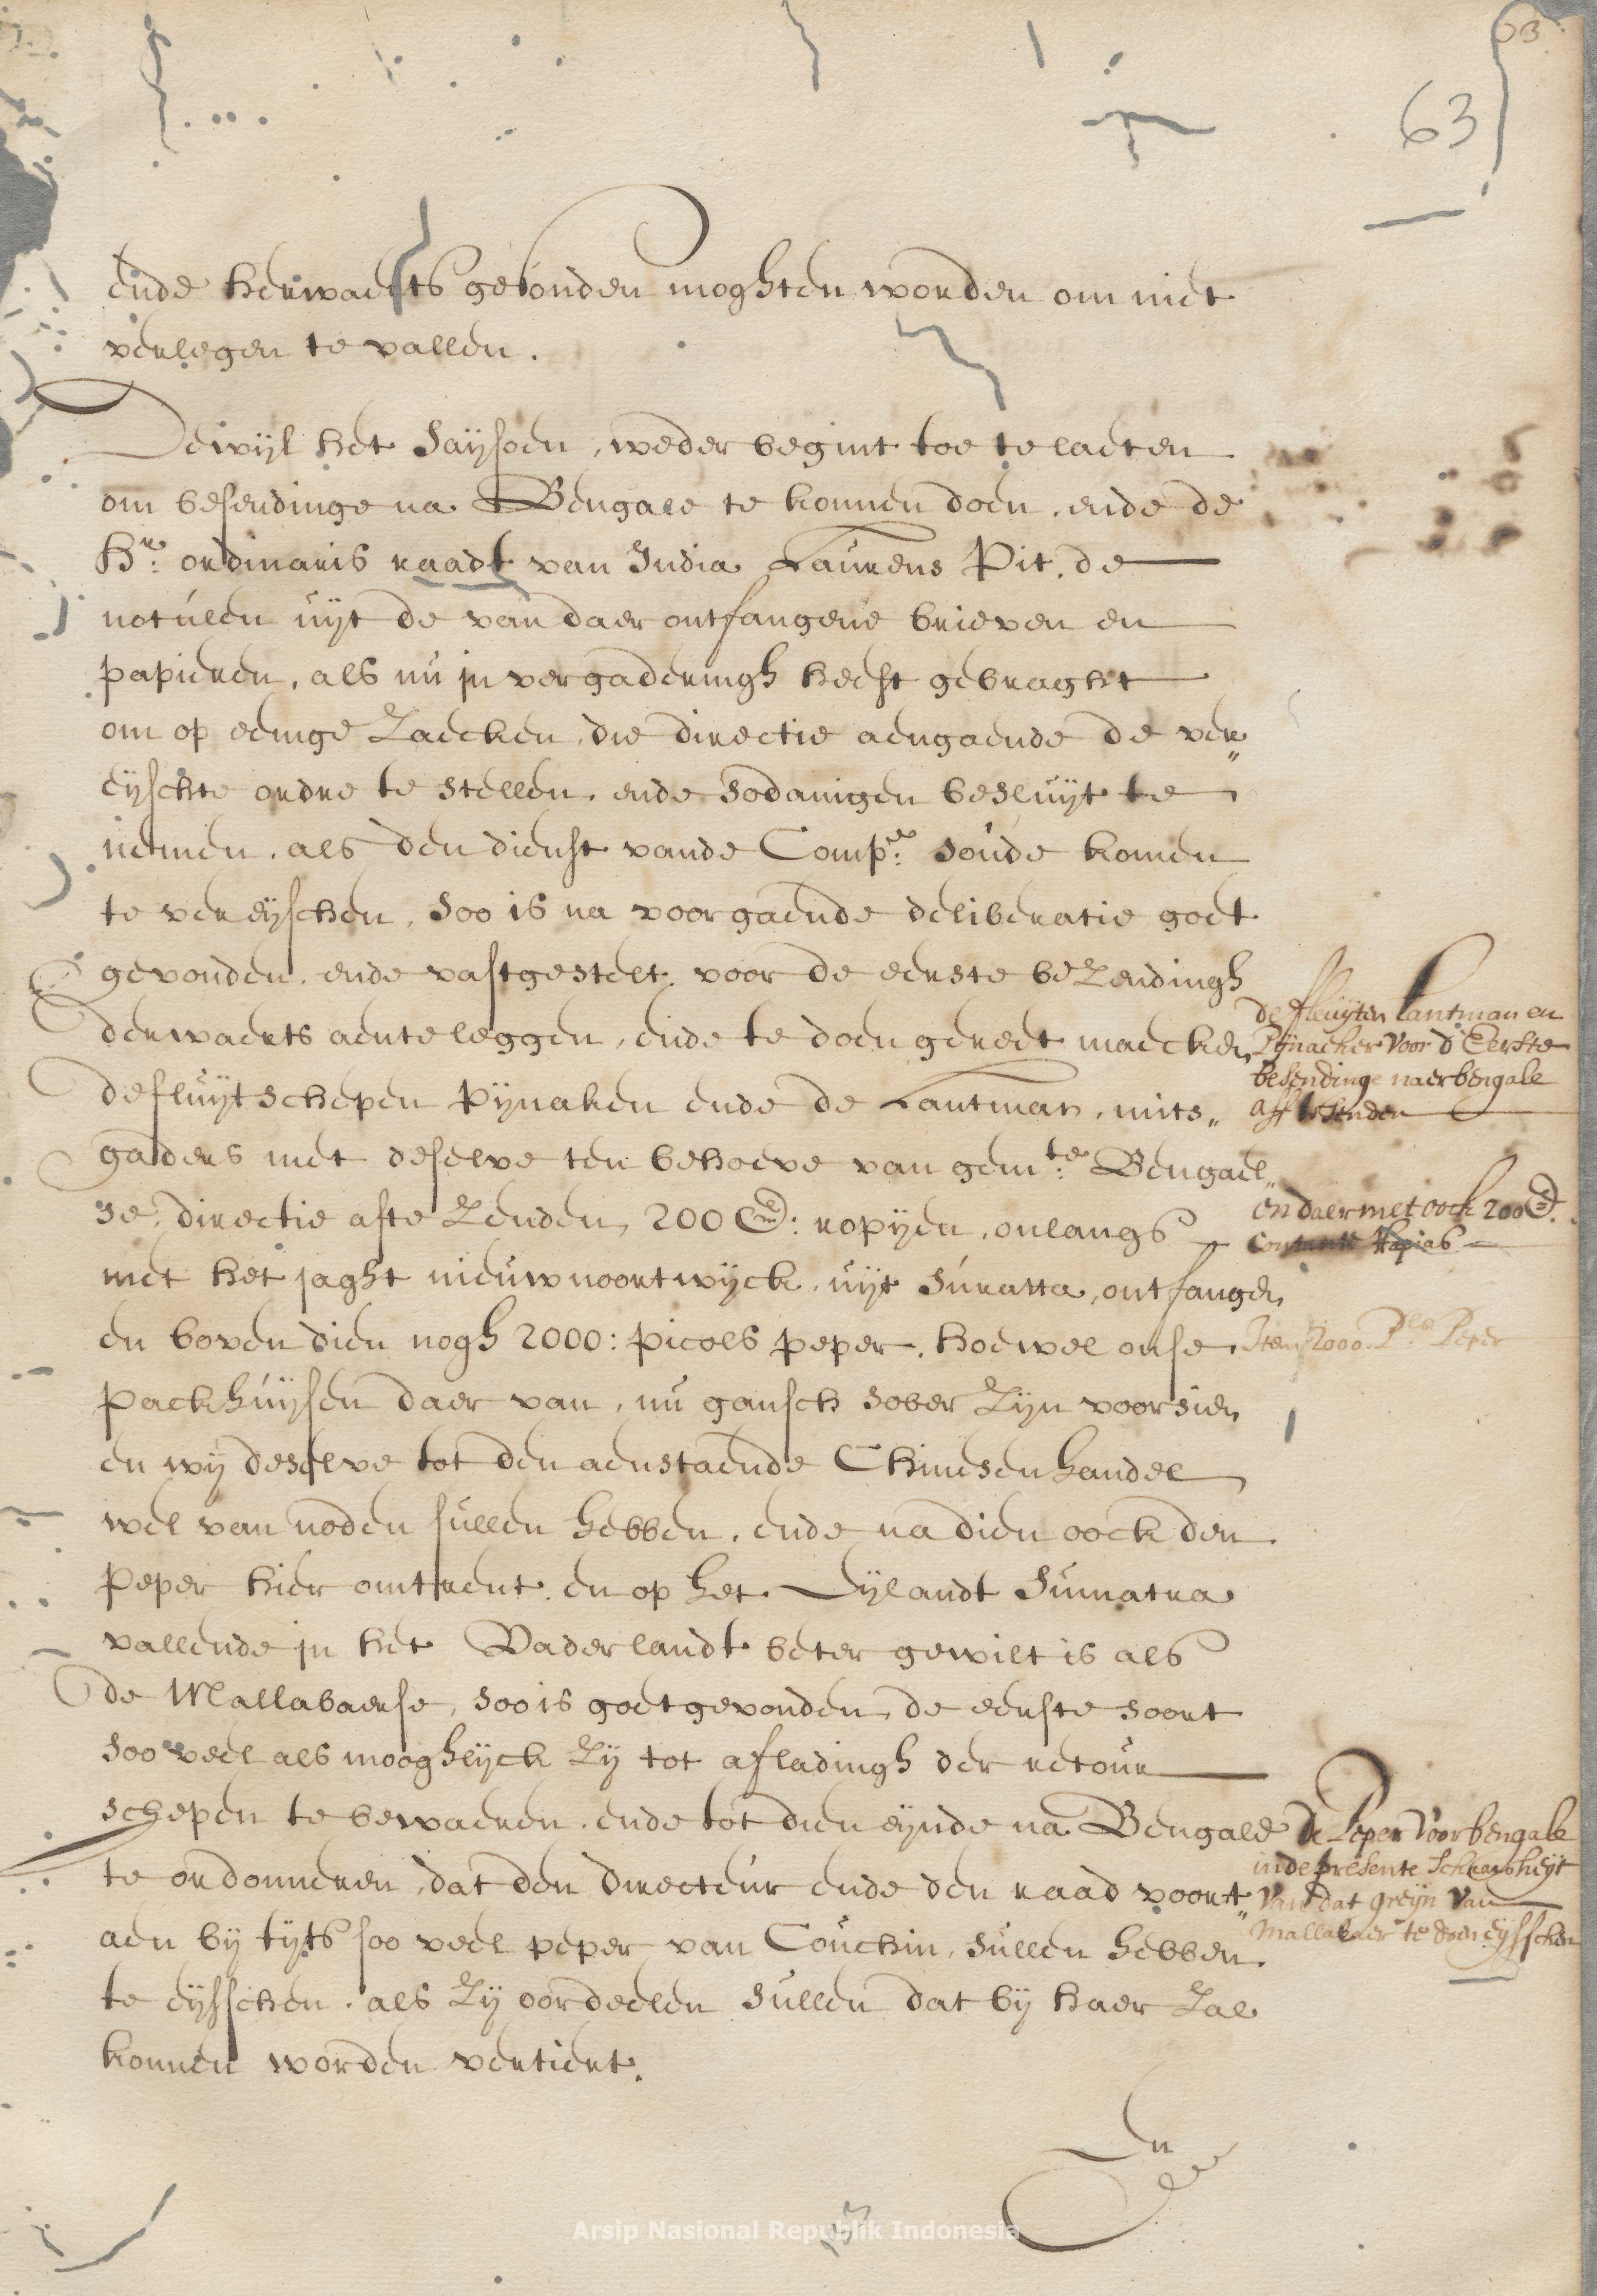 63
63
ende herwaerts gesonden moghten worden om niet
verlegen te vallen.
Dewijl het Saijsoen, weder begint toe te laeten
om besendinge na Bengale te konnen doen, ende de
Hr: ordinaris raadt van India Laurens Pit, de
notulen uijt de van daer ontfangene brieven en
papieren, als nu in vergaderingh heeft gebraght
om op eenige Zaecken, die directie aengaende de ver„
eijschte ordre te stellen, ende sodanigen besluijt te
nemen, als den dienst vande Compe: soude komen
te vereijschen, soo is na voorgaende deliberatie goet
gevonden, ende vastgestelt, voor de eerste beZendingh
derwaerts aenteleggen, ende te doen gereet maecken
de fluijtschepen Pijnaken ende de Lantman, mits„
gaders met deselve ten behoeve van gemte: Bengael„
se, directie afte Zenden, 200 m: ropijen, onlangs
met het jaght nieuwnoortwijck, uijt Suratta, ontfangen
en boven dien nogh 2000: picols peper, hoewel onse
packhuijsen daer van, nu gansch sober Zijn voorsien
en wij deselve tot den aenstaende Chinesen handel
wel van noden sullen hebben, ende nadien oock den
peper hier omtrent, en op het Eijlandt Sumatra
vallende in het Vaderlandt beter gewilt is als
de Mallabaerse, soo is goetgevonden, de eerste soort
soo veel als mooghlijck Zij tot afladingh der retour
schepen te bewaeren, ende tot dien eijnde na Bengale
te ordonneren, dat den directeur ende den raad voort„
aen bij tijts soo veel peper van Couchin, sullen hebben
te eijsschen, als Zij oordeelen sullen dat bij haer Zal
konnen worden vertiert.
En
de fleuijten Lantman en
Pijnacker voor d' Eerste
besendinge naer bengale
aff te senden
en daermet oock 200 m.
contante Ropias
Item 2000 Pls Peper
de Peper voor bengale
in de presente Schaarsheijt
van dat greijn van
Mallabaer te doen eijsschen
153
Arsip Nasional Republik Indonesia